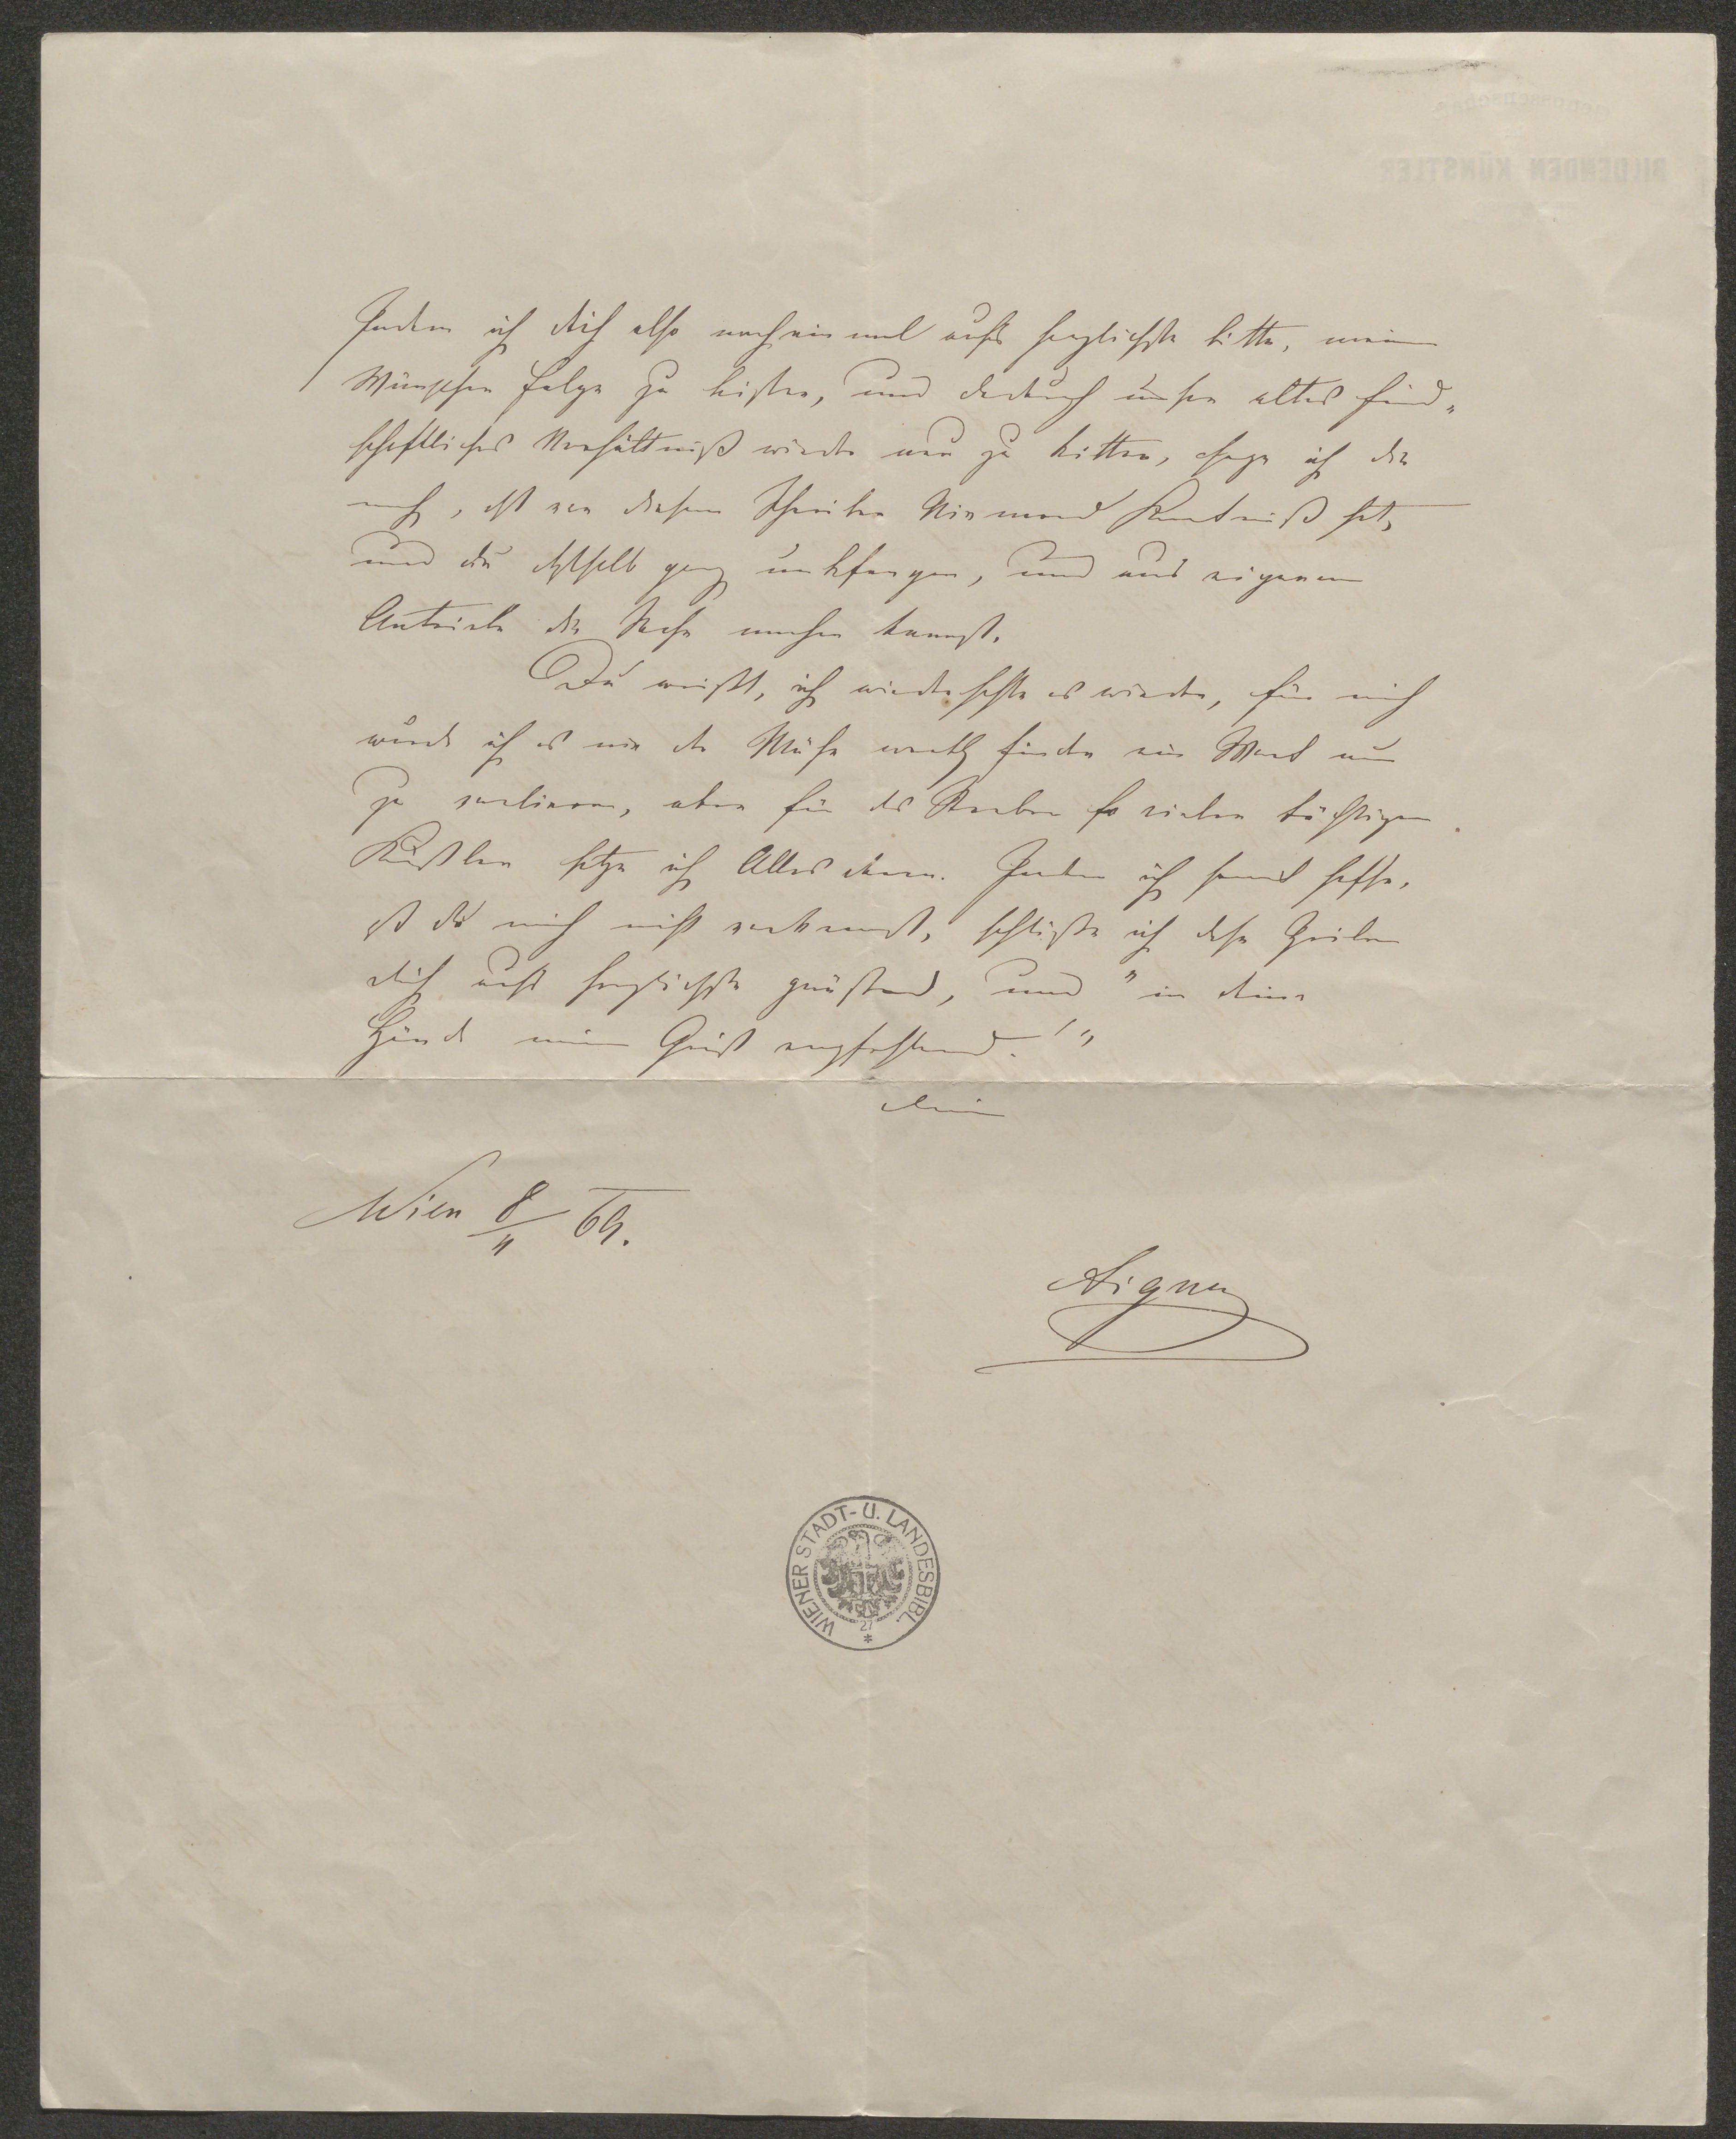 Indem ich dich also noch ein mal aufs herzlichste bitte, meinen
Wünschen Folge zu leisten, und dadurch unser altes freund„
schaftliches Verhältniß wieder neu zu kitten, sage ich dir
noch, daß von diesem Schreiben Niemand Kenntniß hat,
und du deßhalb ganz unbefangen, und aus eigenem
Antriebe die Sache machen kannst.
Du weißt, ich wiederhohle es wieder, für mich
würde ich es nie der Mühe werth finden ein Wort nur
zu verlieren, aber für das Streben so vieler tüchtigen
Künstler setze ich Alles daran. Indem ich somit hoffe,
daß du mich nicht verkennst, schließe ich diese Zeilen
dich aufs herzlichste grüßend, und "in deine
Hände meinen Geist empfehlend!"
dein
Wien 8/11 69.
Aigner
WIENER STADT- U. LANDESBIBL.
27
BILDENDEN KÜNSTLER